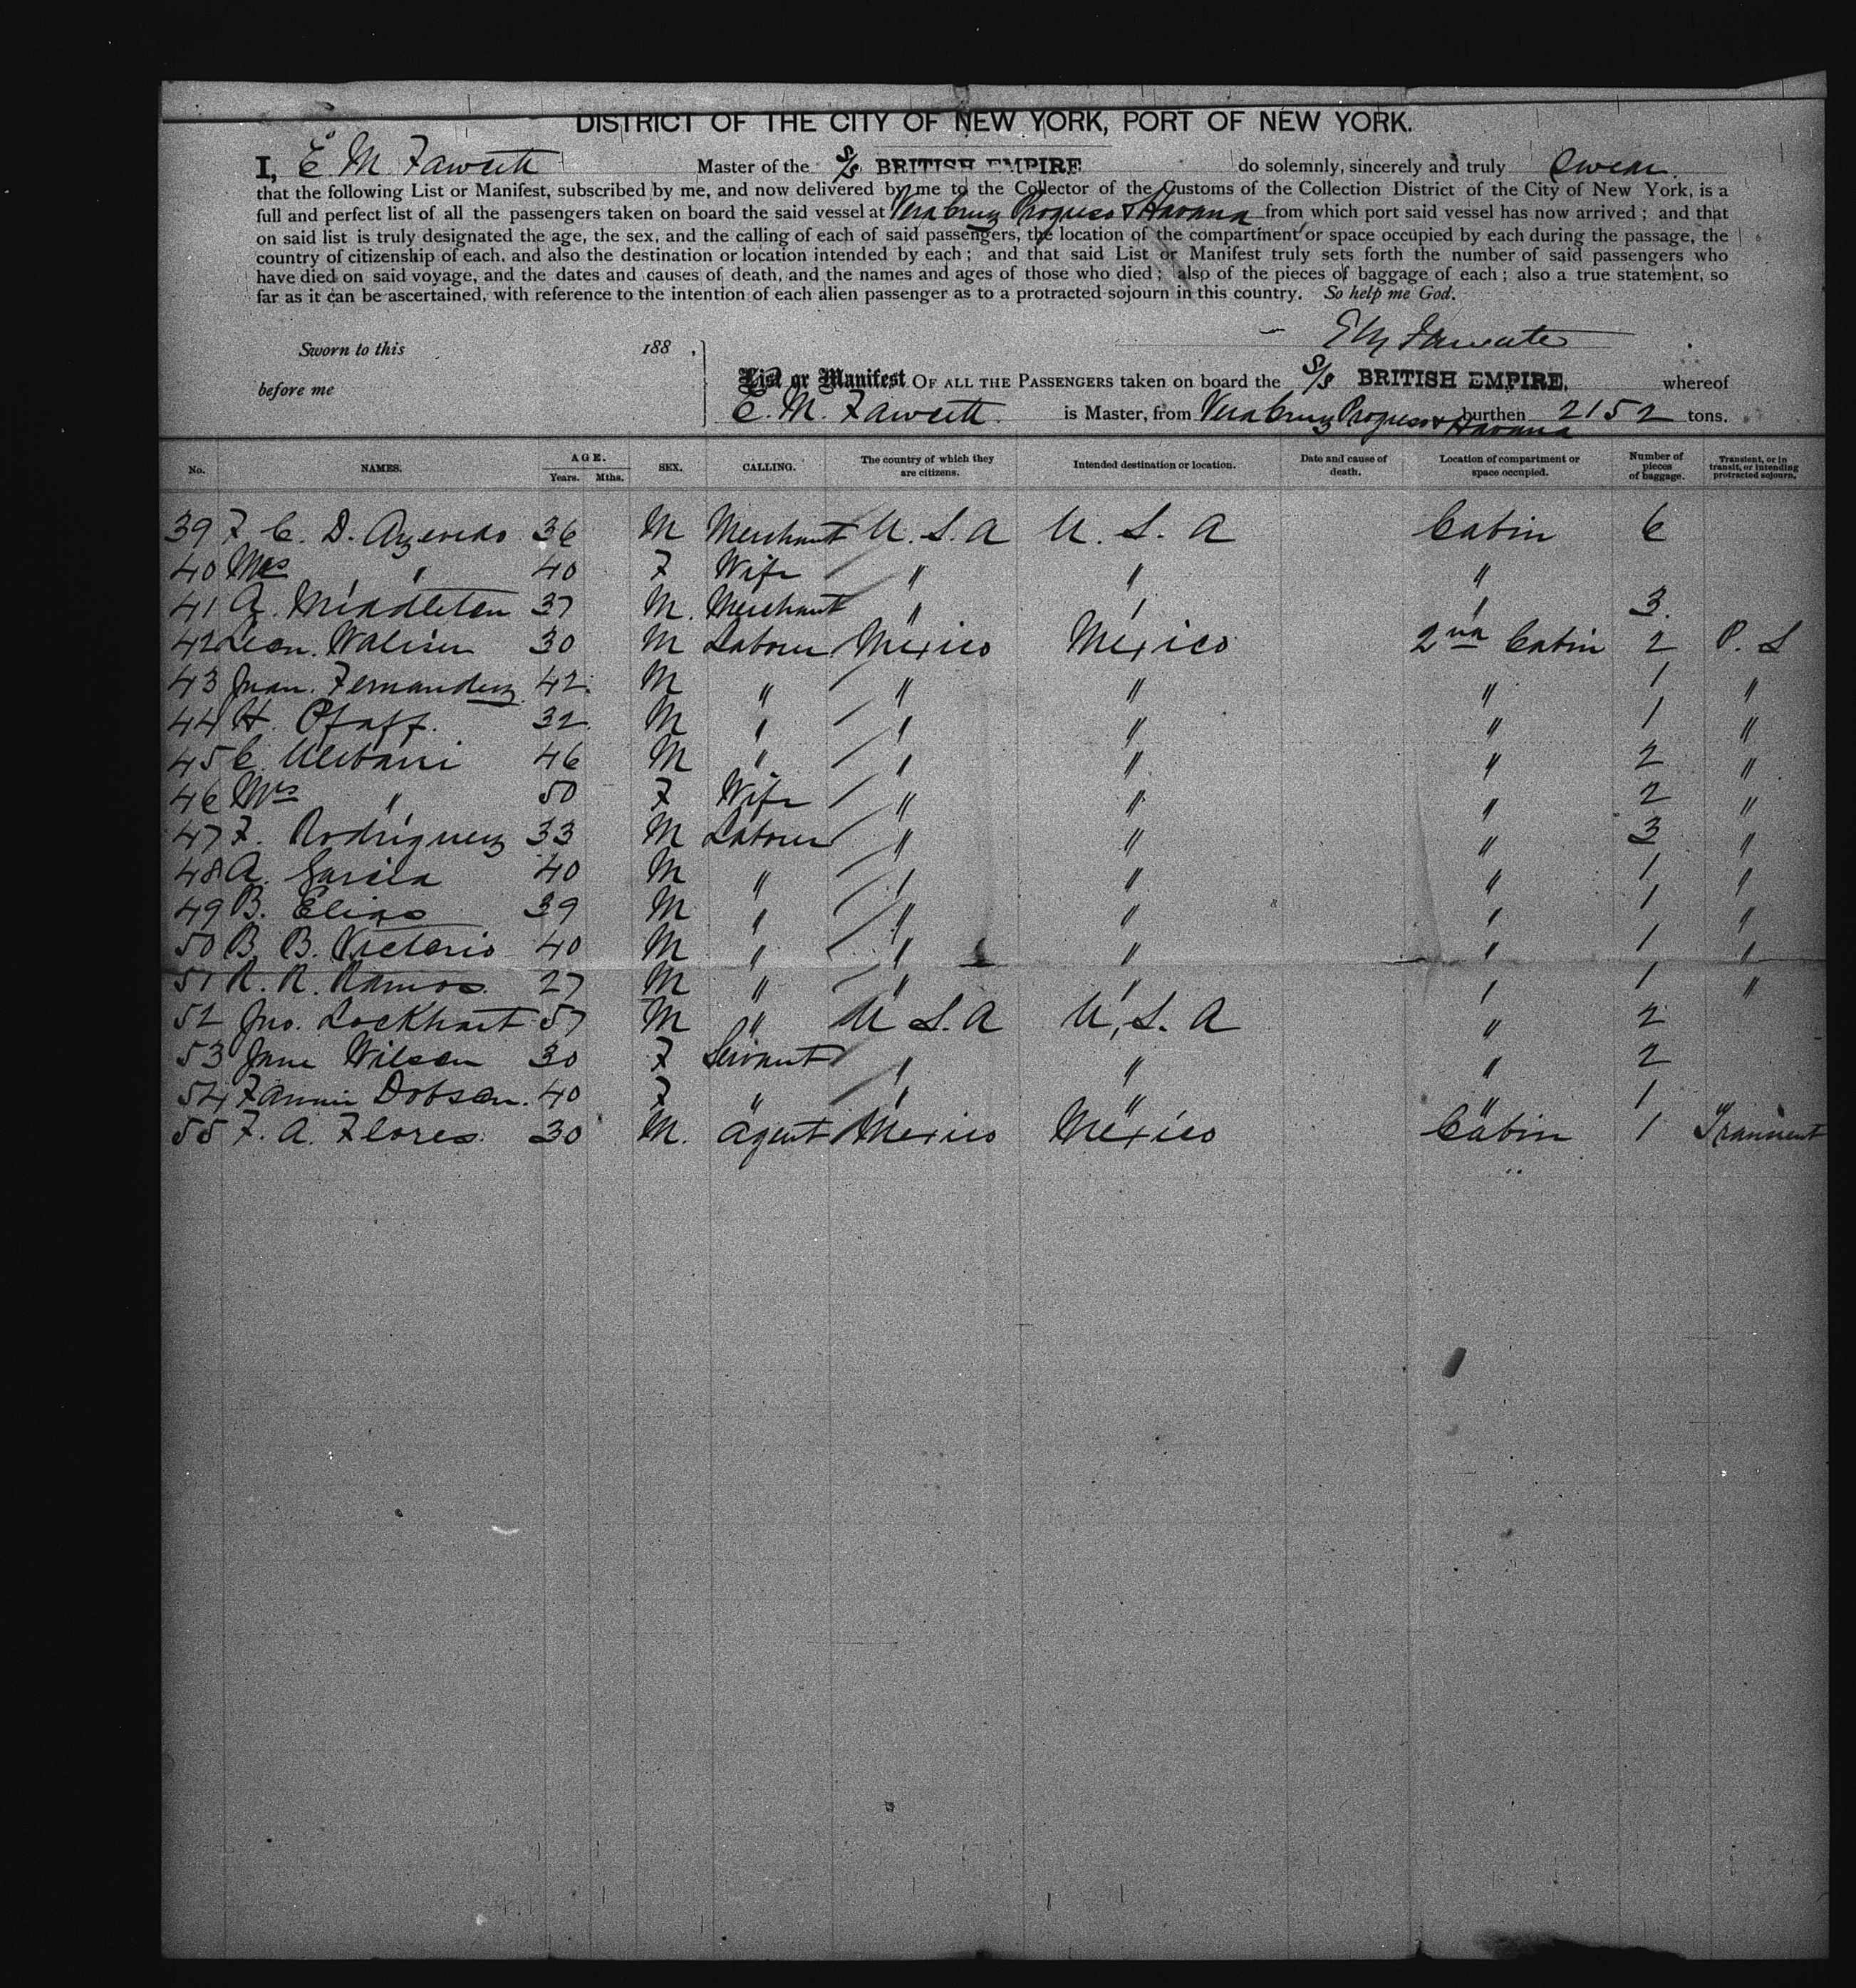 DISTRICT OF THE CITY OF NEW YORK, PORT OF NEW YORK.
I, E. M. Fawcett Master of the S/S BRITISH EMPIRE do solemnly, sincerely and truly swear
that the following List or Manifest, subscribed by me, and now delivered by me to the Collector of the Customs of the Collection District of the City of New York, is a
full and perfect list of all the passengers taken on board the said vessel at Vera Cruz Progreso & Havana from which port said vessel has now arrived; and that
on said list is truly designated the age, the sex, and the calling of each of said passengers, the location of the compartment or space occupied by each during the passage, the
country of citizenship of each, and also the destination or location intended by each; and that said List or Manifest truly sets forth the number of said passengers who
have died on said voyage, and the dates and causes of death, and the names and ages of those who died; also of the pieces of baggage of each; also a true statement, so
far as it can be ascertained, with reference to the intention of each alien passenger as to a protracted sojourn in this country. So help me God.
E M Fawcett
Sworn to this 188 .
before me
List or Manifest OF ALL THE PASSENGERS taken on board the S/S BRITISH EMPIRE, whereof
E. M. Fawcett is Master, from Vera Cruz Progreso & Havana burthen 2152 tons.
No. NAMES. AGE. Years. Mths. SEX. CALLING. The country of which they are citizens. Intended destination or location. Date and cause of death. Location of compartment or space occupied. Number of pieces of baggage. Transient, or in transit, or intending protracted sojourn.
39 F. C. D. Azevedo 36 M Merchant U.S.A U.S.A Cabin 6
40 Mrs " 40 F Wife " " "
41 A. Middleton 37 M. Merchant " " " 3.
42 Leon. 30 M Labour Mexico Mexico 2nd Cabin 2 P. S
43 Juan. Fernandez 42 M " " " " 1 "
44 H. Pfaff. 32 M " " " " 1 "
45 C. 46 M " " " " 2 "
46 Mrs " 50 F Wife " " " 2 "
47 F. Rodriguez 33 M Labour " " " 3 "
48 A. Garcia 40 M " " " " 1 "
49 B. Elias 39 M " " " " 1 "
50 B. B. Victorio 40 M " " " " 1 "
51 R. R. Ramos. 27 M " " " " 1 "
52 Jno. Lockhart 57 M " U S.A U.S.A " 2
53 Jane Wilson 30 F Servant " " " 2
54 Fannie Dobson. 40 F " " " " 1
55 F. A. Flores. 30 M. Agent Mexico Mexico Cabin 1 Transient